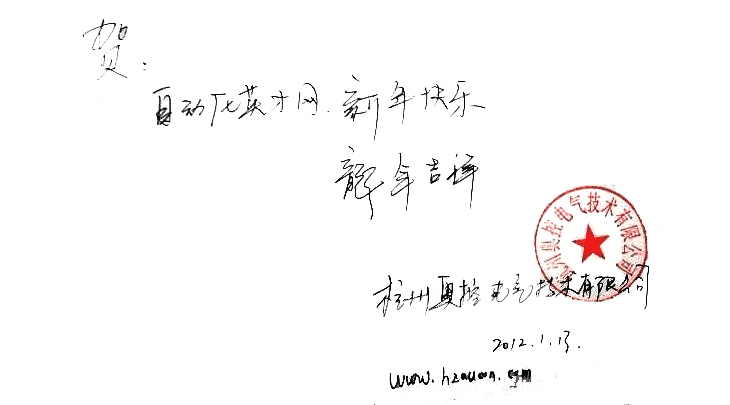 贺:
自动化英才网. 新年快乐
龍年吉祥
杭州奥控电气技术有限公司
杭州奥控电气技术有限公司
2012.1.13.
www.hzaucon.com